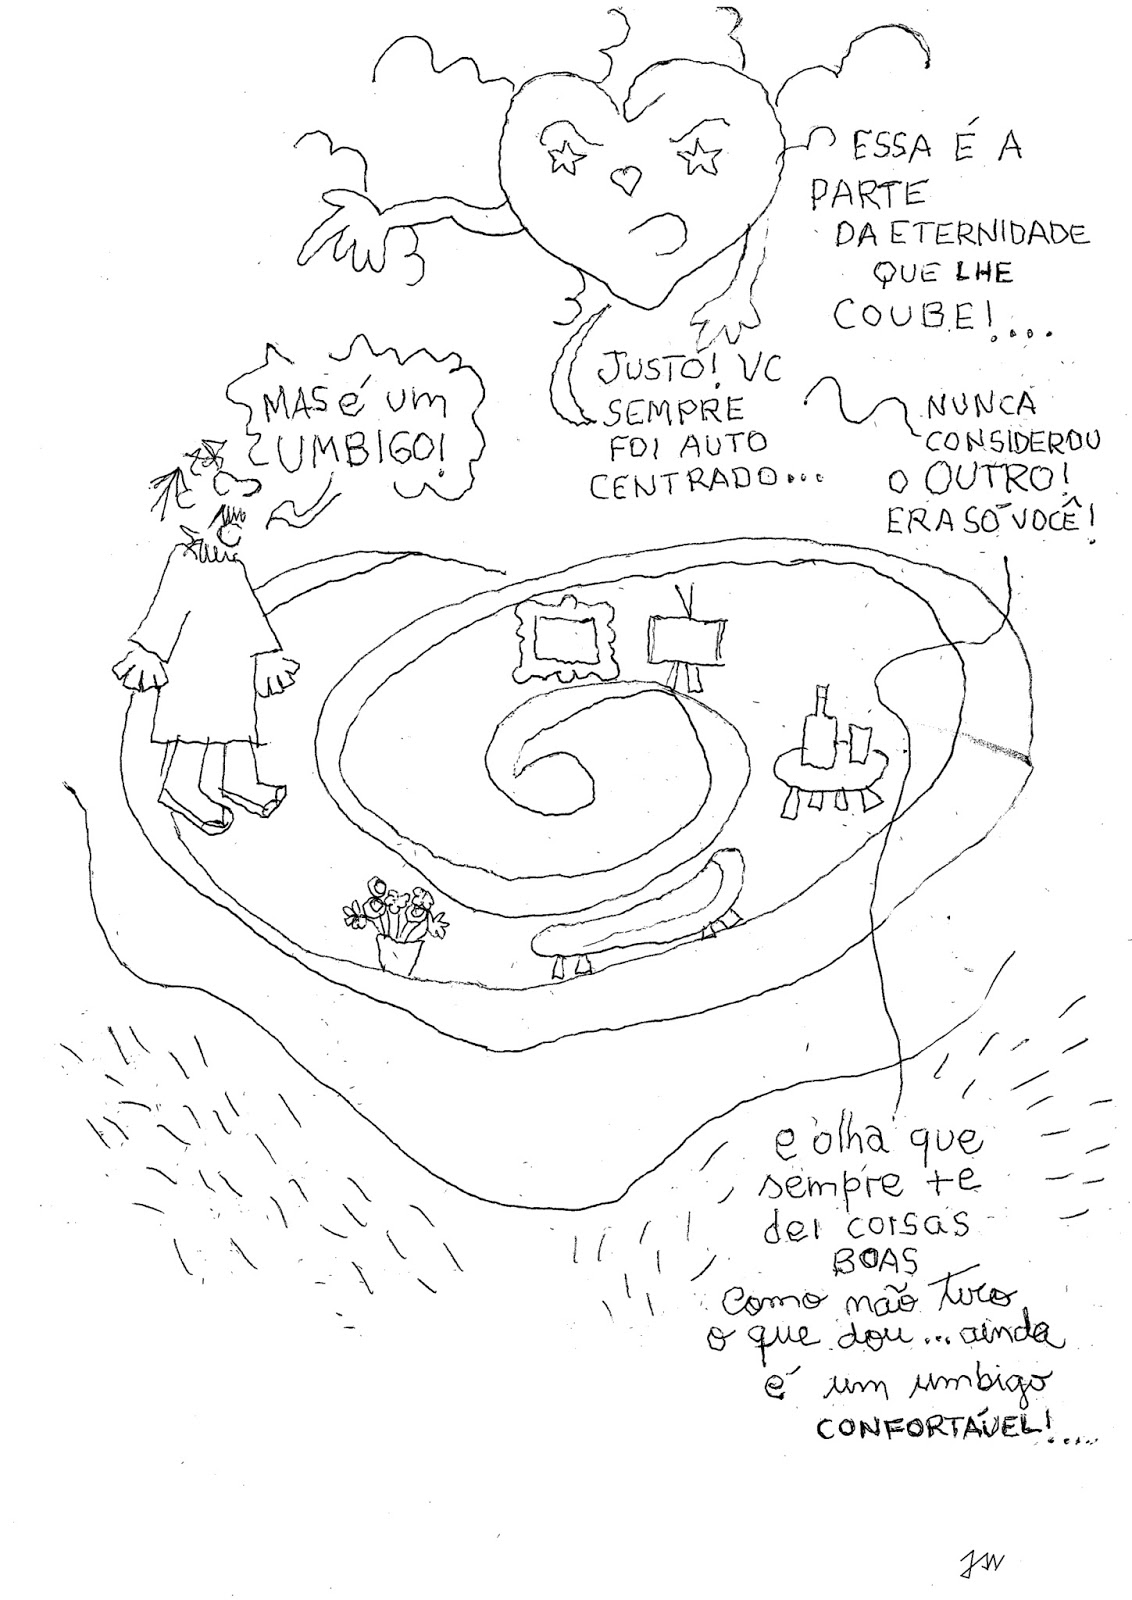 ESSA É A
PARTE
DA ETERNIDADE
QUE LHE
COUBE!...
MAS é um
UMBIGO!
JUSTO! VC
SEMPRE
FOI AUTO
CENTRADO...
NUNCA
CONSIDEROU
O OUTRO!
ERA SÓ VOCÊ!
e olha que
sempre te
dei coisas
BOAS
como não tiro
o que dou... ainda
é um umbigo
CONFORTÁVEL!....
JW